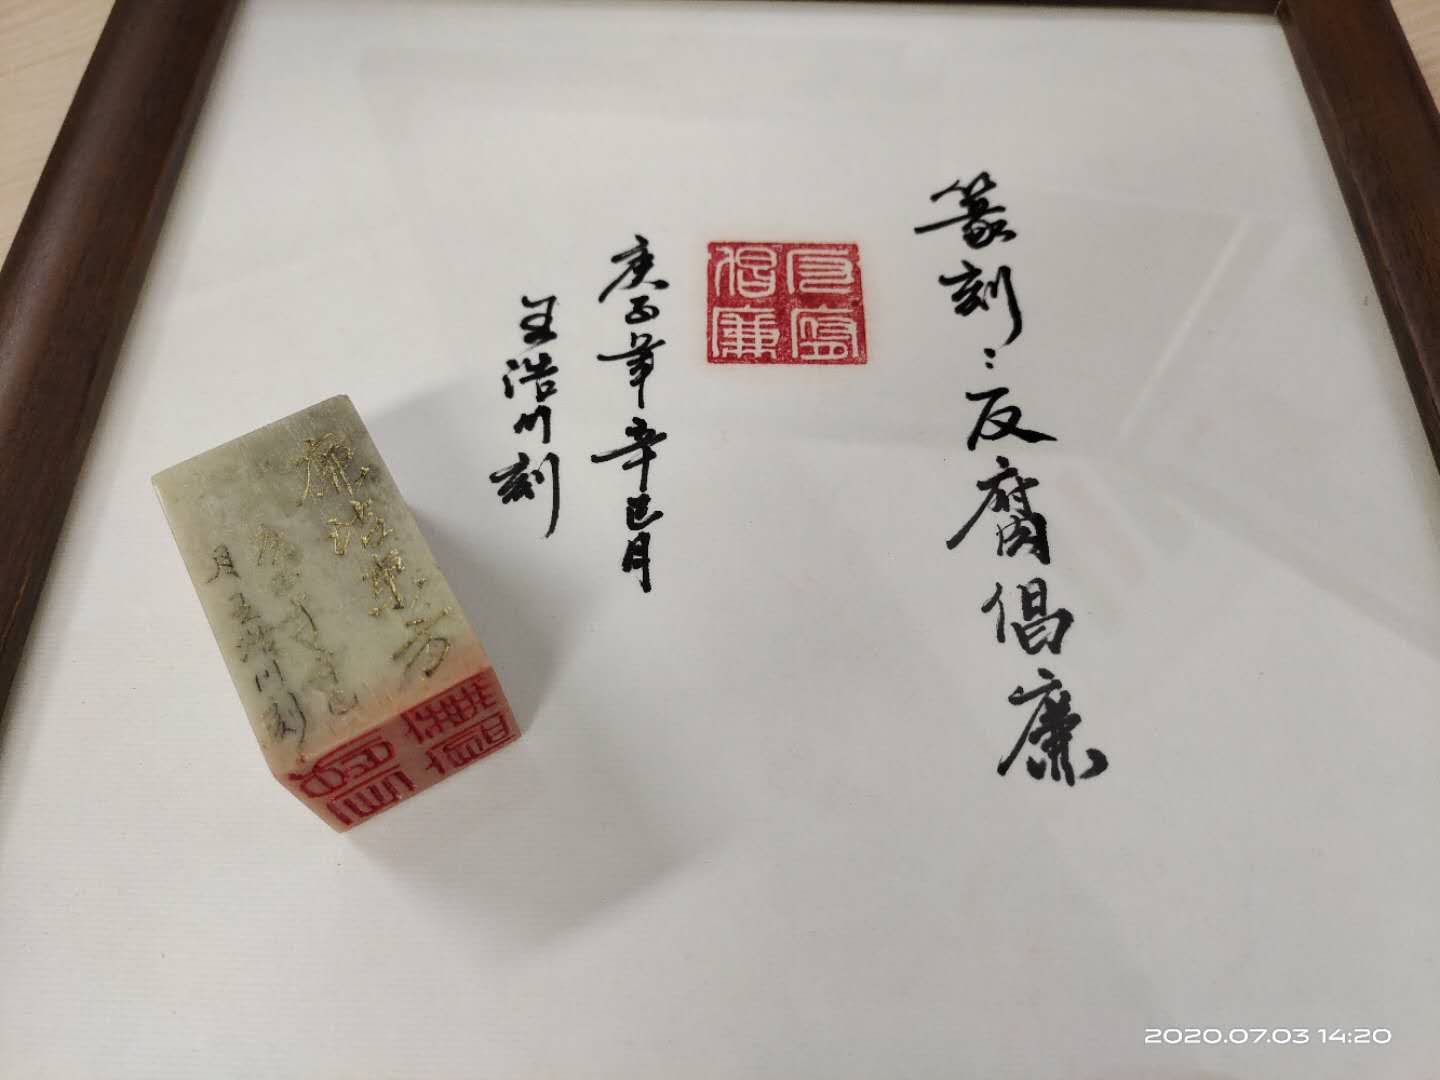 篆刻：反腐倡廉
反腐
倡廉
庚子年辛巳月
王浩川刻
月王浩川刻
2020.07.03 14:20